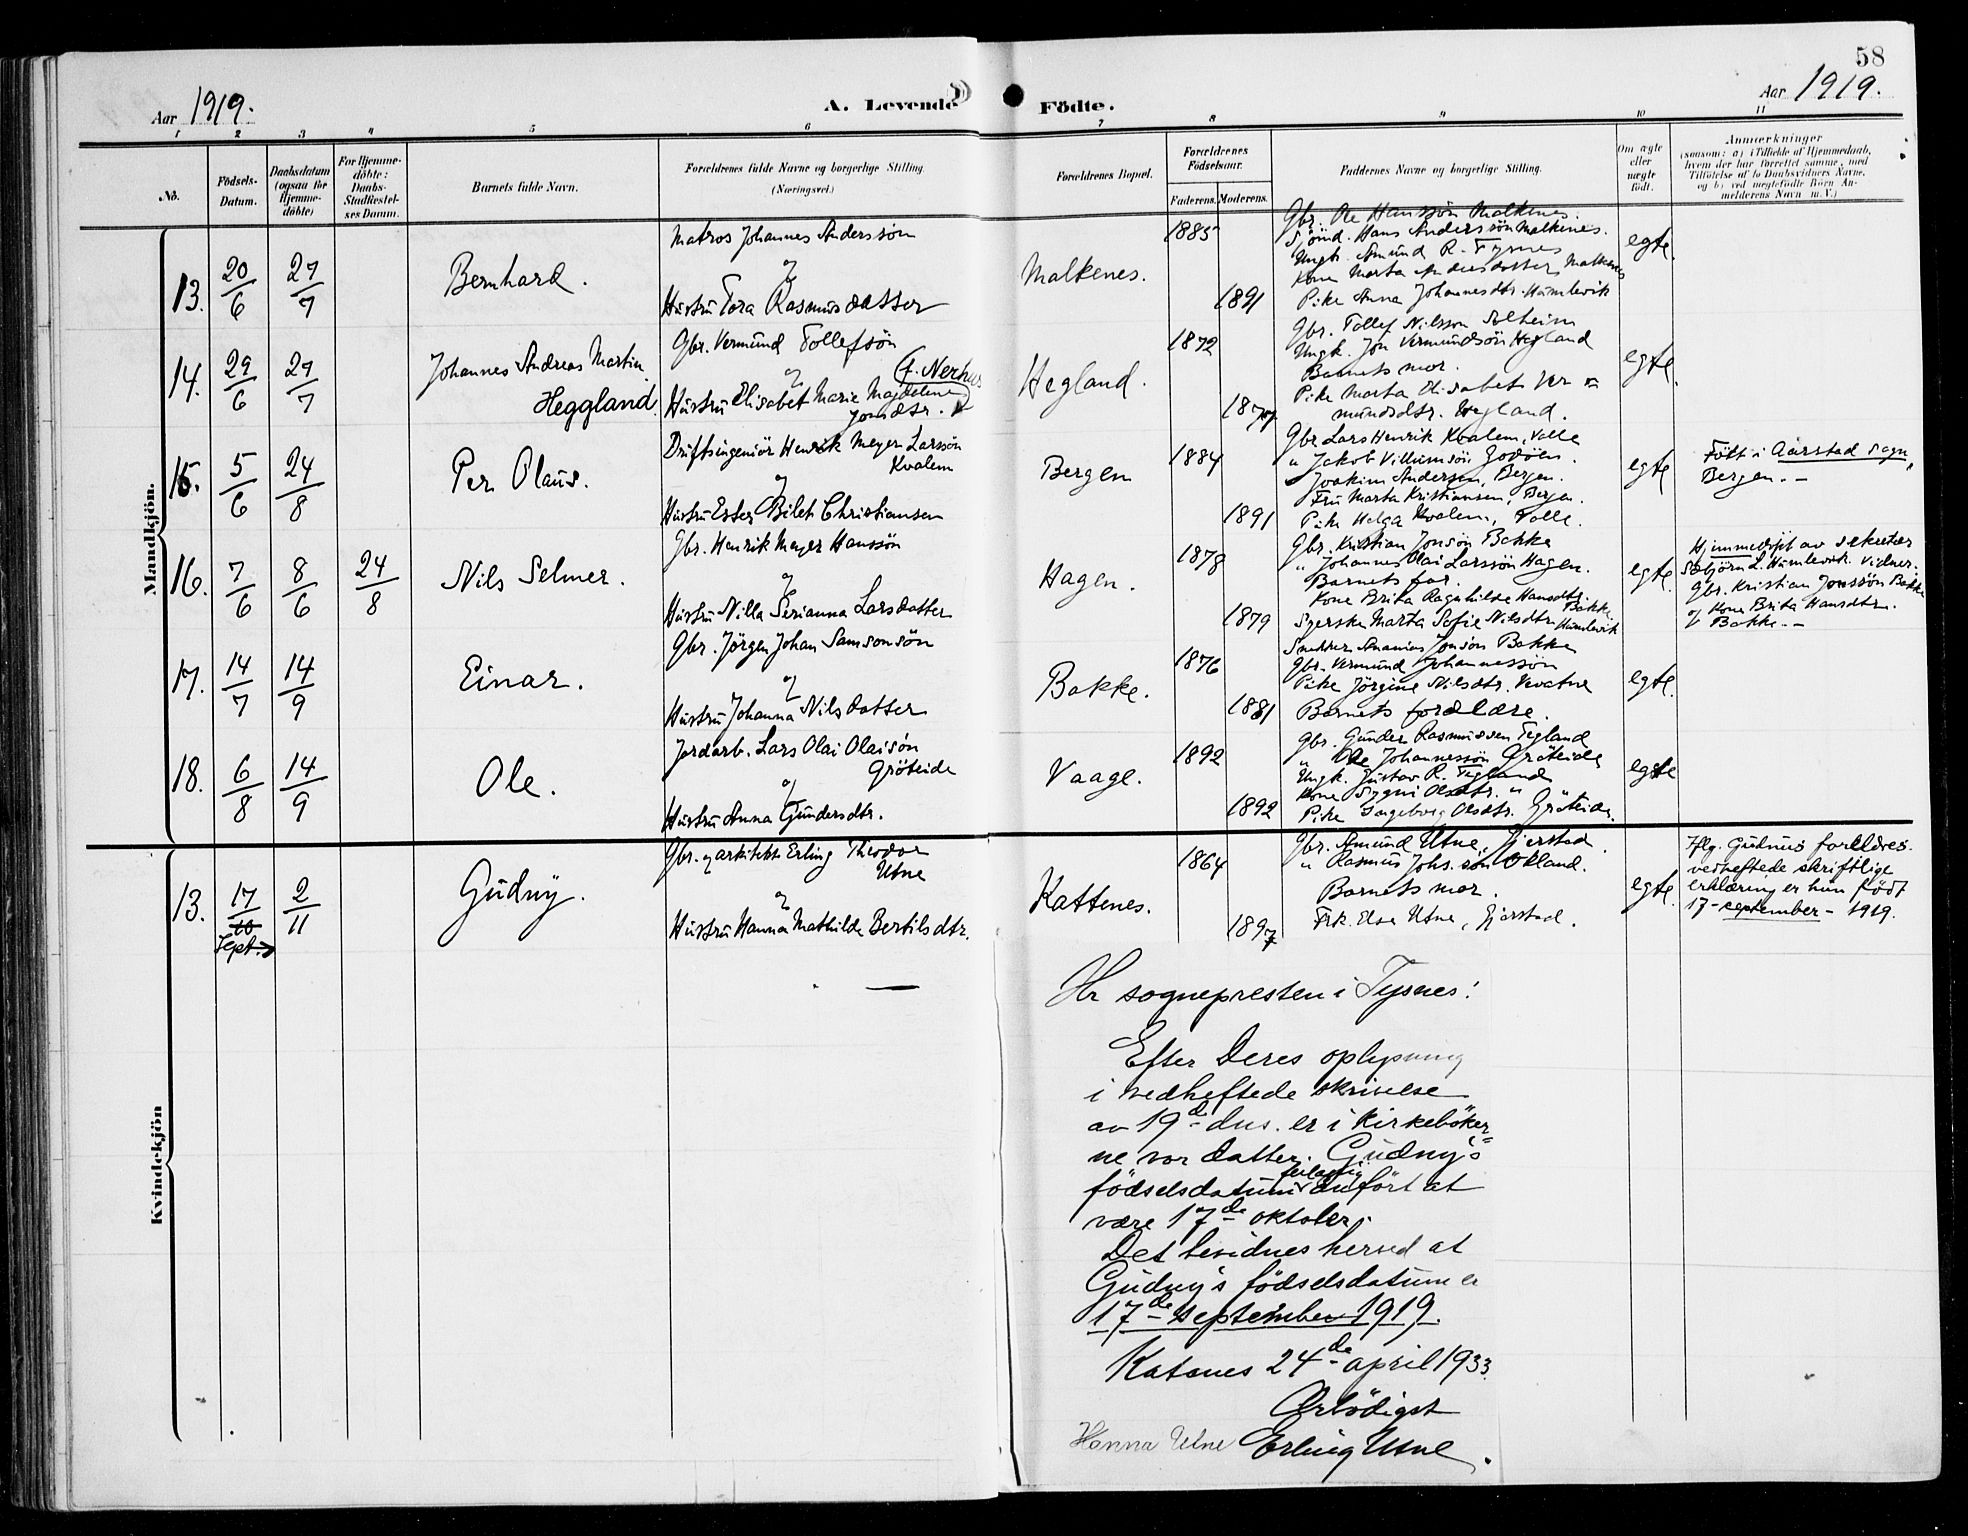 58
Aar 1919.
A. Levende Födte.
Aar 1919.
1 2 3 4 5 6 7 8 9 10 11
No.
Födsels-Datum.
Daabsdatum (ogsaa för Hjemme-döbte)
For Hjemme-döbte: Daabs-Stadfæstel-ses Datum.
Barnets fulde Navn.
Forældrenes fulde Navne og borgerlige Stilling. (Næringsvei.)
Forældrenes Bopæl.
Forældrenes Födselsaar.
Faderens. Moderens.
Faddernes Navne og borgerlige Stilling.
Om ægte eller uægte födt.
Anmærkninger
(saasom: a) i Tilfælde af Hjemmedaab,
hvem der har forrettet samme, med
Tilföielse af to Daabsvidners Navne,
og b) ved uegtefödte Börn An-
melderens Navn m. V.)
Mandkjön.
13. 20/6 27/7 Bernhard.
Matros Johannes Anderssön
og
Hustru Tora Rasmusdatter
Malkenes.
1885
1891
Gbr. Ole Hanssön Malkenes.
Sjömd. Hans Anderssön Malkenes.
Ungk. Amund R. Tysnes
Kone Marta Andersdatter Malkenes
Pike Anna Johannesdtr. Humlevik
egte.
14. 29/6 27/7 Johannes Andreas Martin
Heggland.
Gbr. Vermund Tollefsön
og
(f. Nerhus
Hustru Elisabet Marie Magdalena
Jonsdtr.
Hegland.
1872
1877
Gbr. Tollef Nilsson Solheim
Ungk. Jon Vermundsön Hegland
Barnets mor.
Pike Marta Elisabet Ver=
mundsdtr. Hegland.
egte.
15. 5/6 24/8 Per Olaus.
Driftsingeniör Henrik Meyer Larssön
Kvalem
og
Hustru Ester Bilet Christiansen
Bergen
1884
1891
Gbr. Lars Henrik Kvalem, Valle
" Jakob Villumsön Godöen.
Joakim Andersen, Bergen.
Fru Marta Kristiansen, Bergen.
Pike Helga Kvalem, Valle.
egte
Född i Aarstad sogn,
Bergen. –
16. 7/6 8/6 24/8 Nils Selmer.
Gbr. Henrik Meyer Hanssön
og
Hustru Nilla Serianna Larsdatter
Hagen.
1878
1879
Gbr. Kristian Jonsön Bakke
" Johannes Olai Larssön Hagen.
Barnets far.
Kone Brita Ragnhilde Hansdtr.
Bakke
Syerske Marta Sofie Nilsdtr. Humlevik
egte.
Hjemmedöpt av sekretær
Sebjörn L. Humlevik. Vidner:
Gbr. Kristian Jonssön Bakke
og Kone Brita Hansdtr.
Bakke. –
17. 14/7 14/9 Einar.
Gbr. Jörgen Johan Samsonsön
og
Hustru Johanna Nilsdatter
Bakke.
1876
1881
Snekker Ananias Jonsön Bakke
Gbr. Vermund Johannessön
Pike Jörgine Nilsdtr. Kvatne
Barnets forældre.
egte.
18. 6/8 14/9 Ole.
Jordarb. Lars Olai Olaisön
Gröteide
og
Hustru Anna Gundersdtr.
Vaage.
1892
1892
Gbr. Gunder Rasmussen Tegland
" Ole Johannessön Gröteide
Ungk. Gustav R. Tegland
Kone Sygni Olsdtr. "
Pike Ingeborg Olsdtr. Gröteide.
egte
Kvindekjön
13. 17/10 2/11 Gudny.
Sept.
Gbr. og arkitekt Erling Theodor
Utne
og
Hustru Hanna Mathilde Bertilsdtr.
Kattenes.
1864
1897
Gbr. Amund Utne, Gjerstad.
" Rasmus Johs.sön Ökland.
Barnets mor.
Frk. Elsa Utne, Gjerstad.
egte.
Iflg. Gudnys forældres
vedheftede skriftlige
erklæring er hun födt
17-september – 1919.
Hr sognepresten i Tysnes!
Efter Deres oplysning
i vedheftede skrivelse
av 19de dns. er i kirkeböker=
ne vor datter. Gudny's
feilagtig
födselsdatum anfört at
være 17de oktober.
Det bevidnes herved at
Gudny's födselsdatum er
17de september 1919.
Katenes 24de april 1933.
Ærbödigst
Hanna Utne Erling Utne.